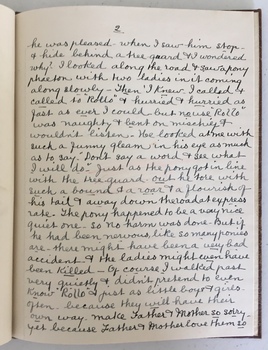 2
he was pleased when I saw him stop
& hide behind a tree guard & I wondered
why! I looked along the road & saw a pony
phaeton with two ladies in it coming
along slowly — Then I knew. I called &
called to Rollo & hurried & hurried as
fast as ever I could but no use Rollo
was naughty & bent on mischief &
wouldn't listen — He looked at me with
such a funny gleam in his eye as much
as to say. "Don't say a word & see what
I will do." Just as the pony got in line
with the tree guard. Out he tore with
such a bound & a roar & a flourish of
his tail & away down the road at express
rate. The pony happened to be a very nice
quiet one. So no harm was done. But if
he had been nervous like so many ponies
are there might have been a very bad
accident & the ladies might even have
been killed — Of course I walked past
very quietly & didn't pretend to even
know Rollo & just as little boys & girls
often because they will have their
own way. make Father & Mother so sorry
yet because Father & Mother love them so